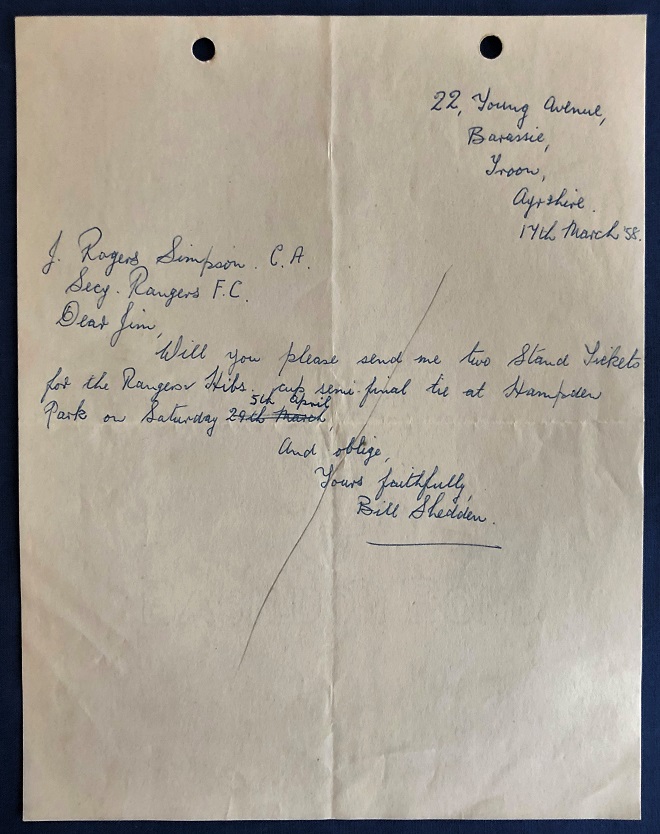 22, Young Avenue,
Barassie,
Troon,
Ayrshire.
17th March '58.
J. Rogers Simpson. C.A.
Secy. Rangers F.C.
Dear Jim,
Will you please send me two Stand Tickets
for the Rangers v Hibs. cup semi-final tie at Hampden
5th April
Park on Saturday 29th March
And oblige,
Yours faithfully,
Bill Shedden.